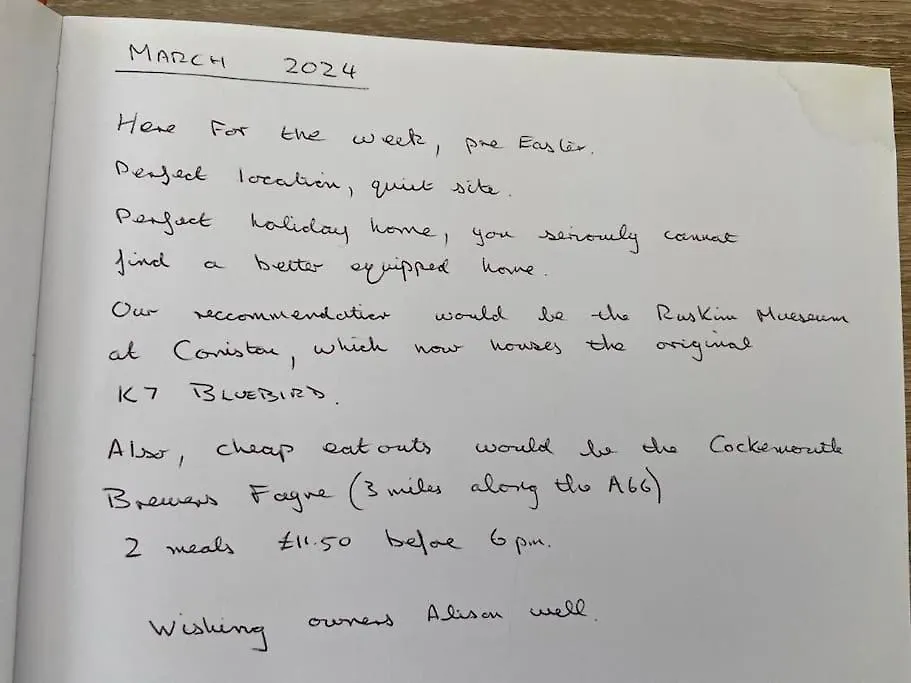 MARCH 2024
Here For the week, pre Easter.
Perfect location, quiet site.
Perfect holiday home, you seriously cannot
find a better equipped home.
Our reccommendation would be the Ruskin Mueseum
at Coniston, which now houses the original
K7 BLUEBIRD.
Also, cheap eat outs would be the Cockermouth
Brewers Fayre (3 miles along the A66)
2 meals £11.50 before 6pm.
Wishing owners Alison well.